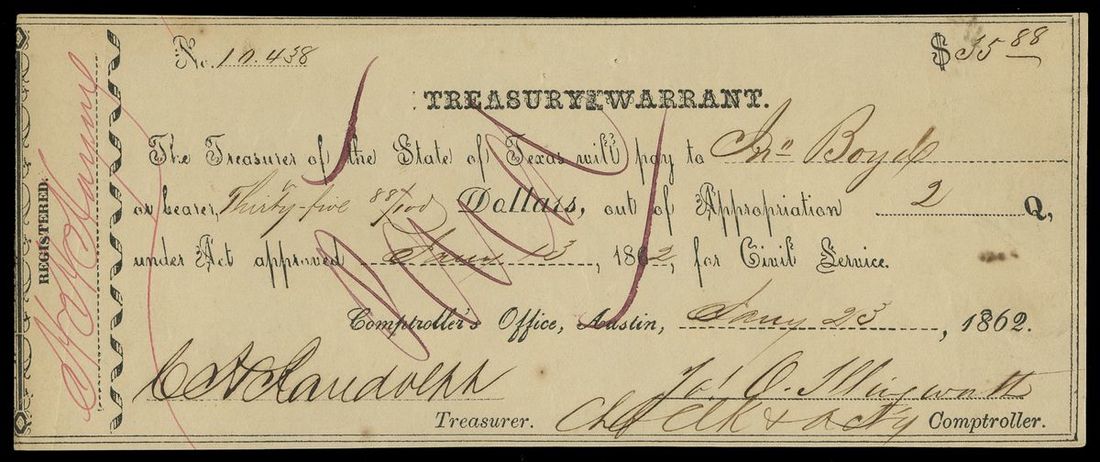 No. 10.438 $35 88
TREASURY WARRANT.
The Treasurer of the State of Texas will pay to Jno Boyd
or bearer, Thirty-five 88/100 Dollars, out of Appropriation 2 Q,
under Act approved Jany 13, 1862, for Civil Service.
Comptroller's Office, Austin, Jany 23, 1862.
C H Randolph
Treasurer.
Jo. O. Illingworth
Ch Clk & actg Comptroller.
REGISTERED.